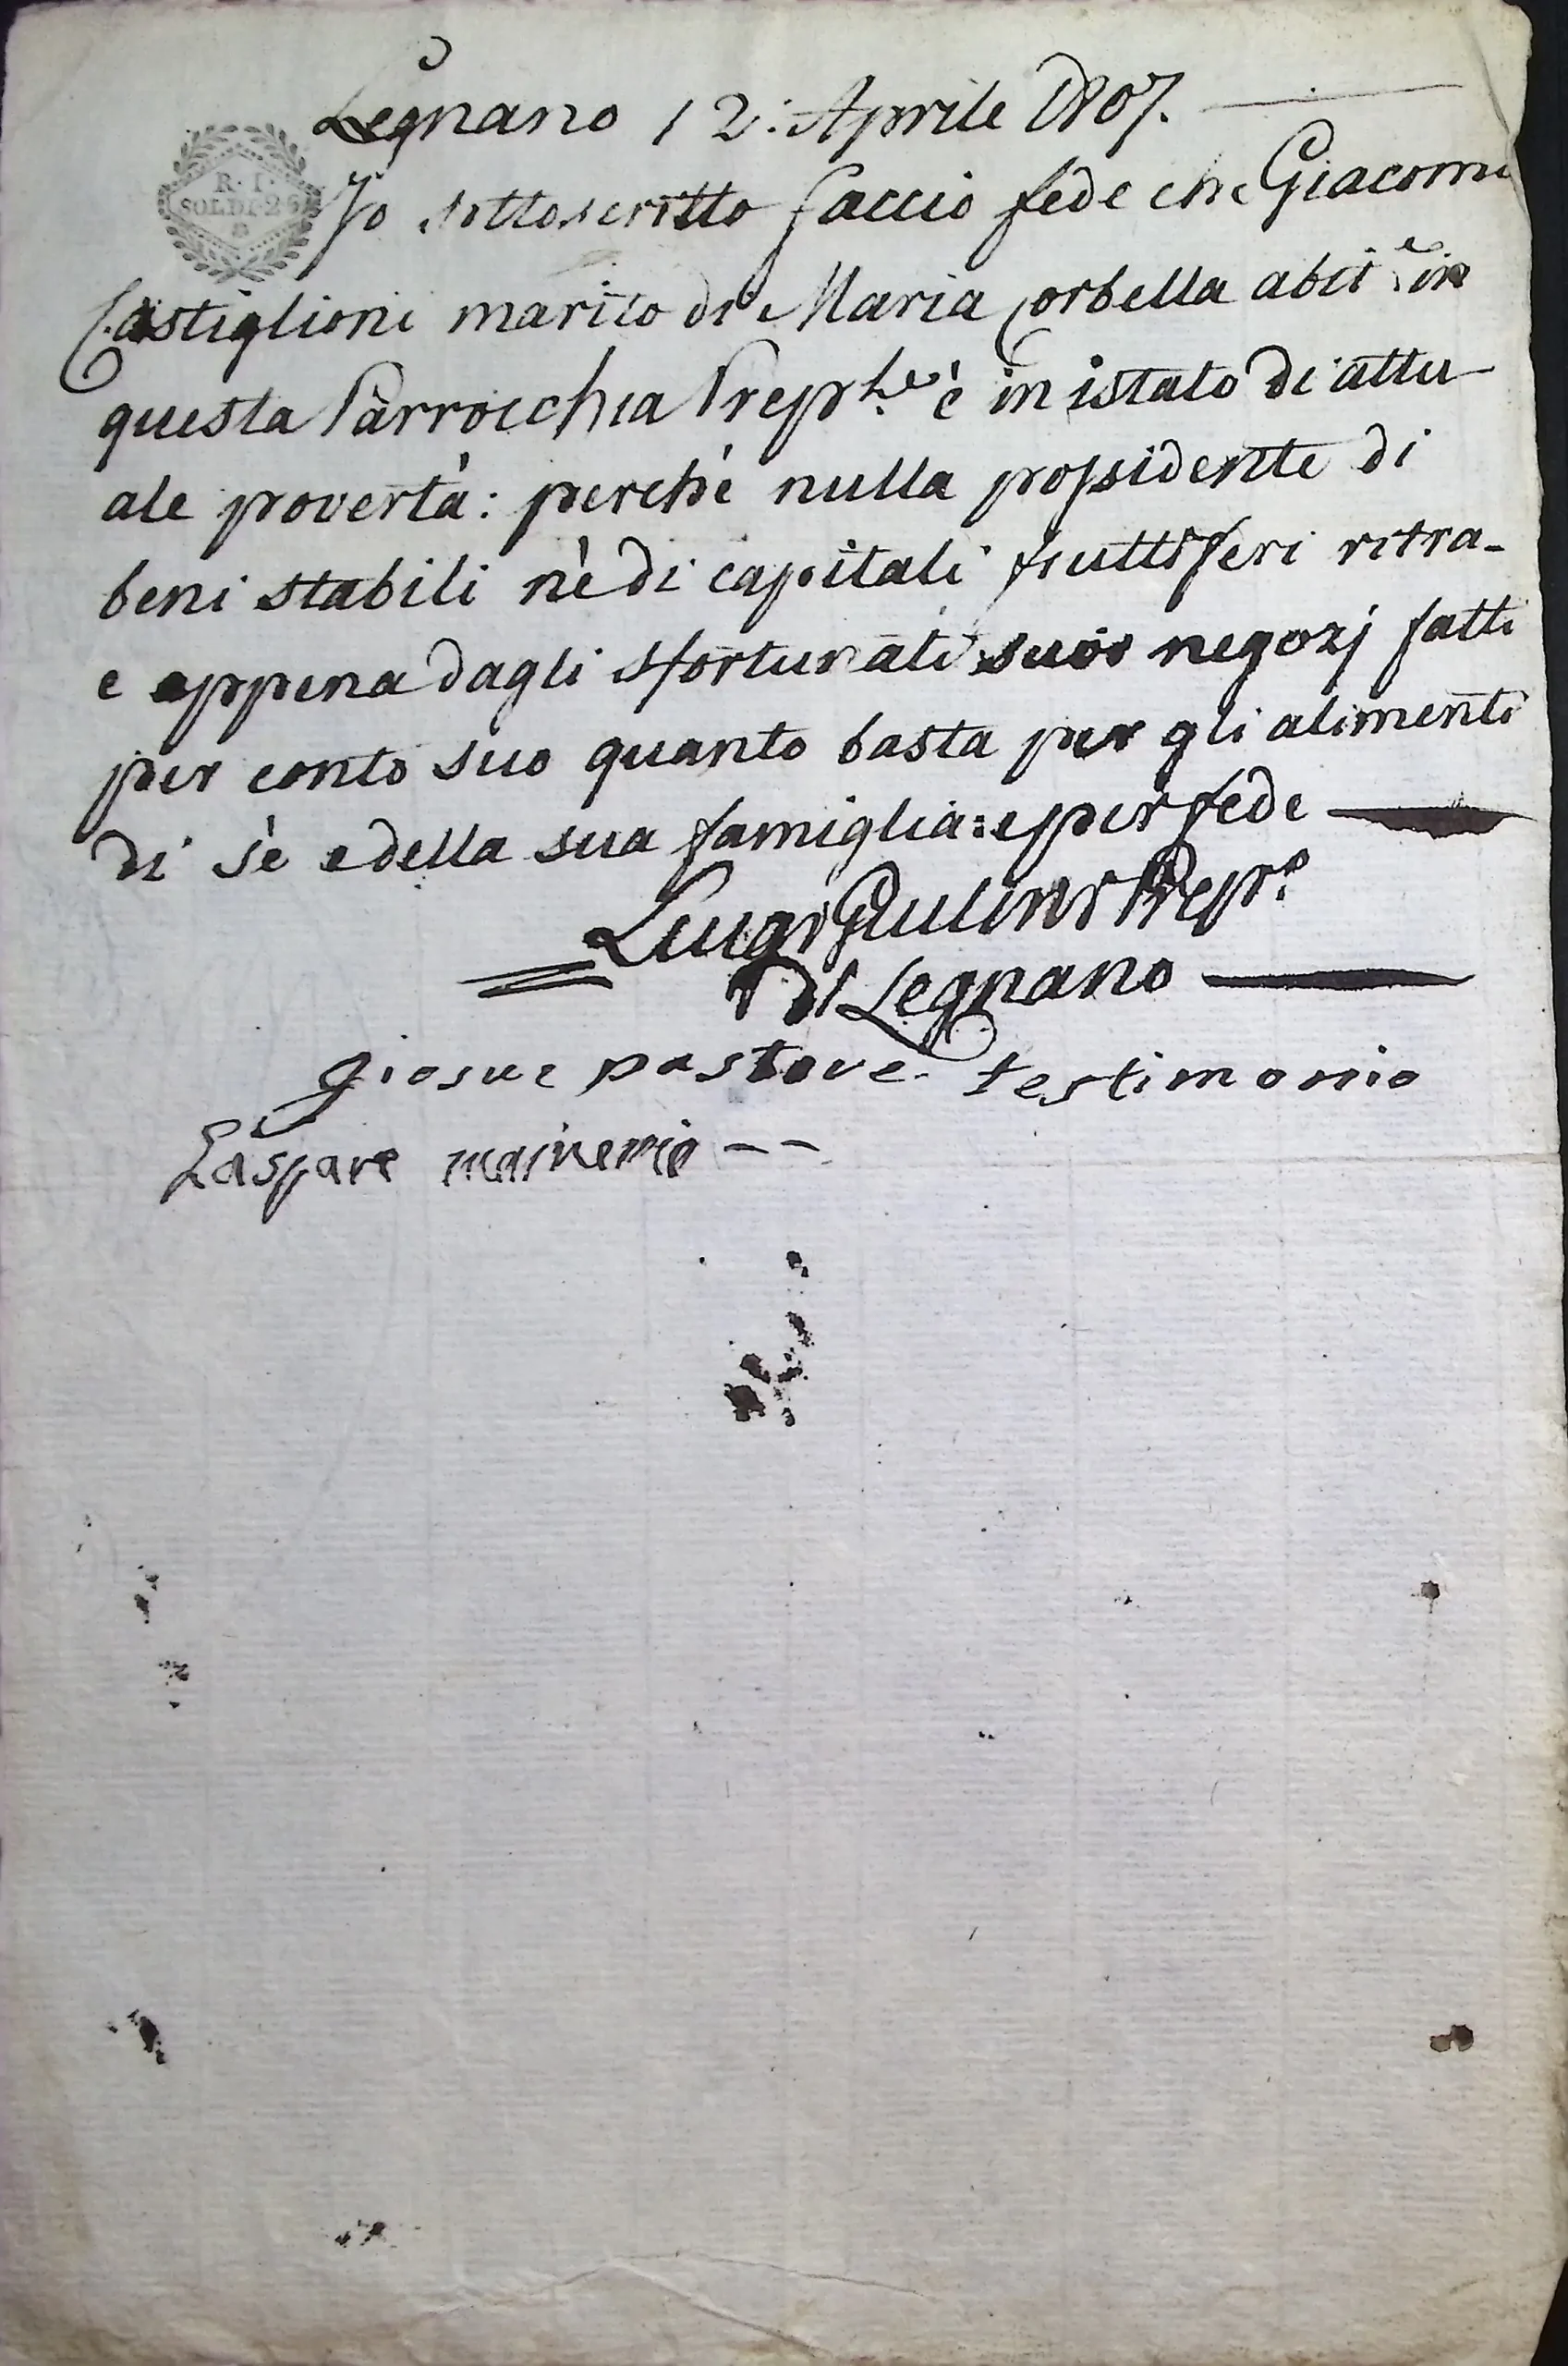 Legnano 12: Aprile 1807.
R. I.
SOLDI 25
Jo sottoscritto faccio fede che Giacomo
Castiglioni marito di Maria Corbella abit.e in
questa Parrocchia Prep.le è in istato di attu-
ale povertà: perchè nulla possidente di
beni stabili nè di capitali fruttiferi ritra-
e appena dagli sfortunati suoi negozj fatti
per conto suo quanto basta per gli alimenti
di sè e della sua famiglia: e per fede
Luigi Prep.o
di Legnano
Giosue pastore testimonio
Gaspare